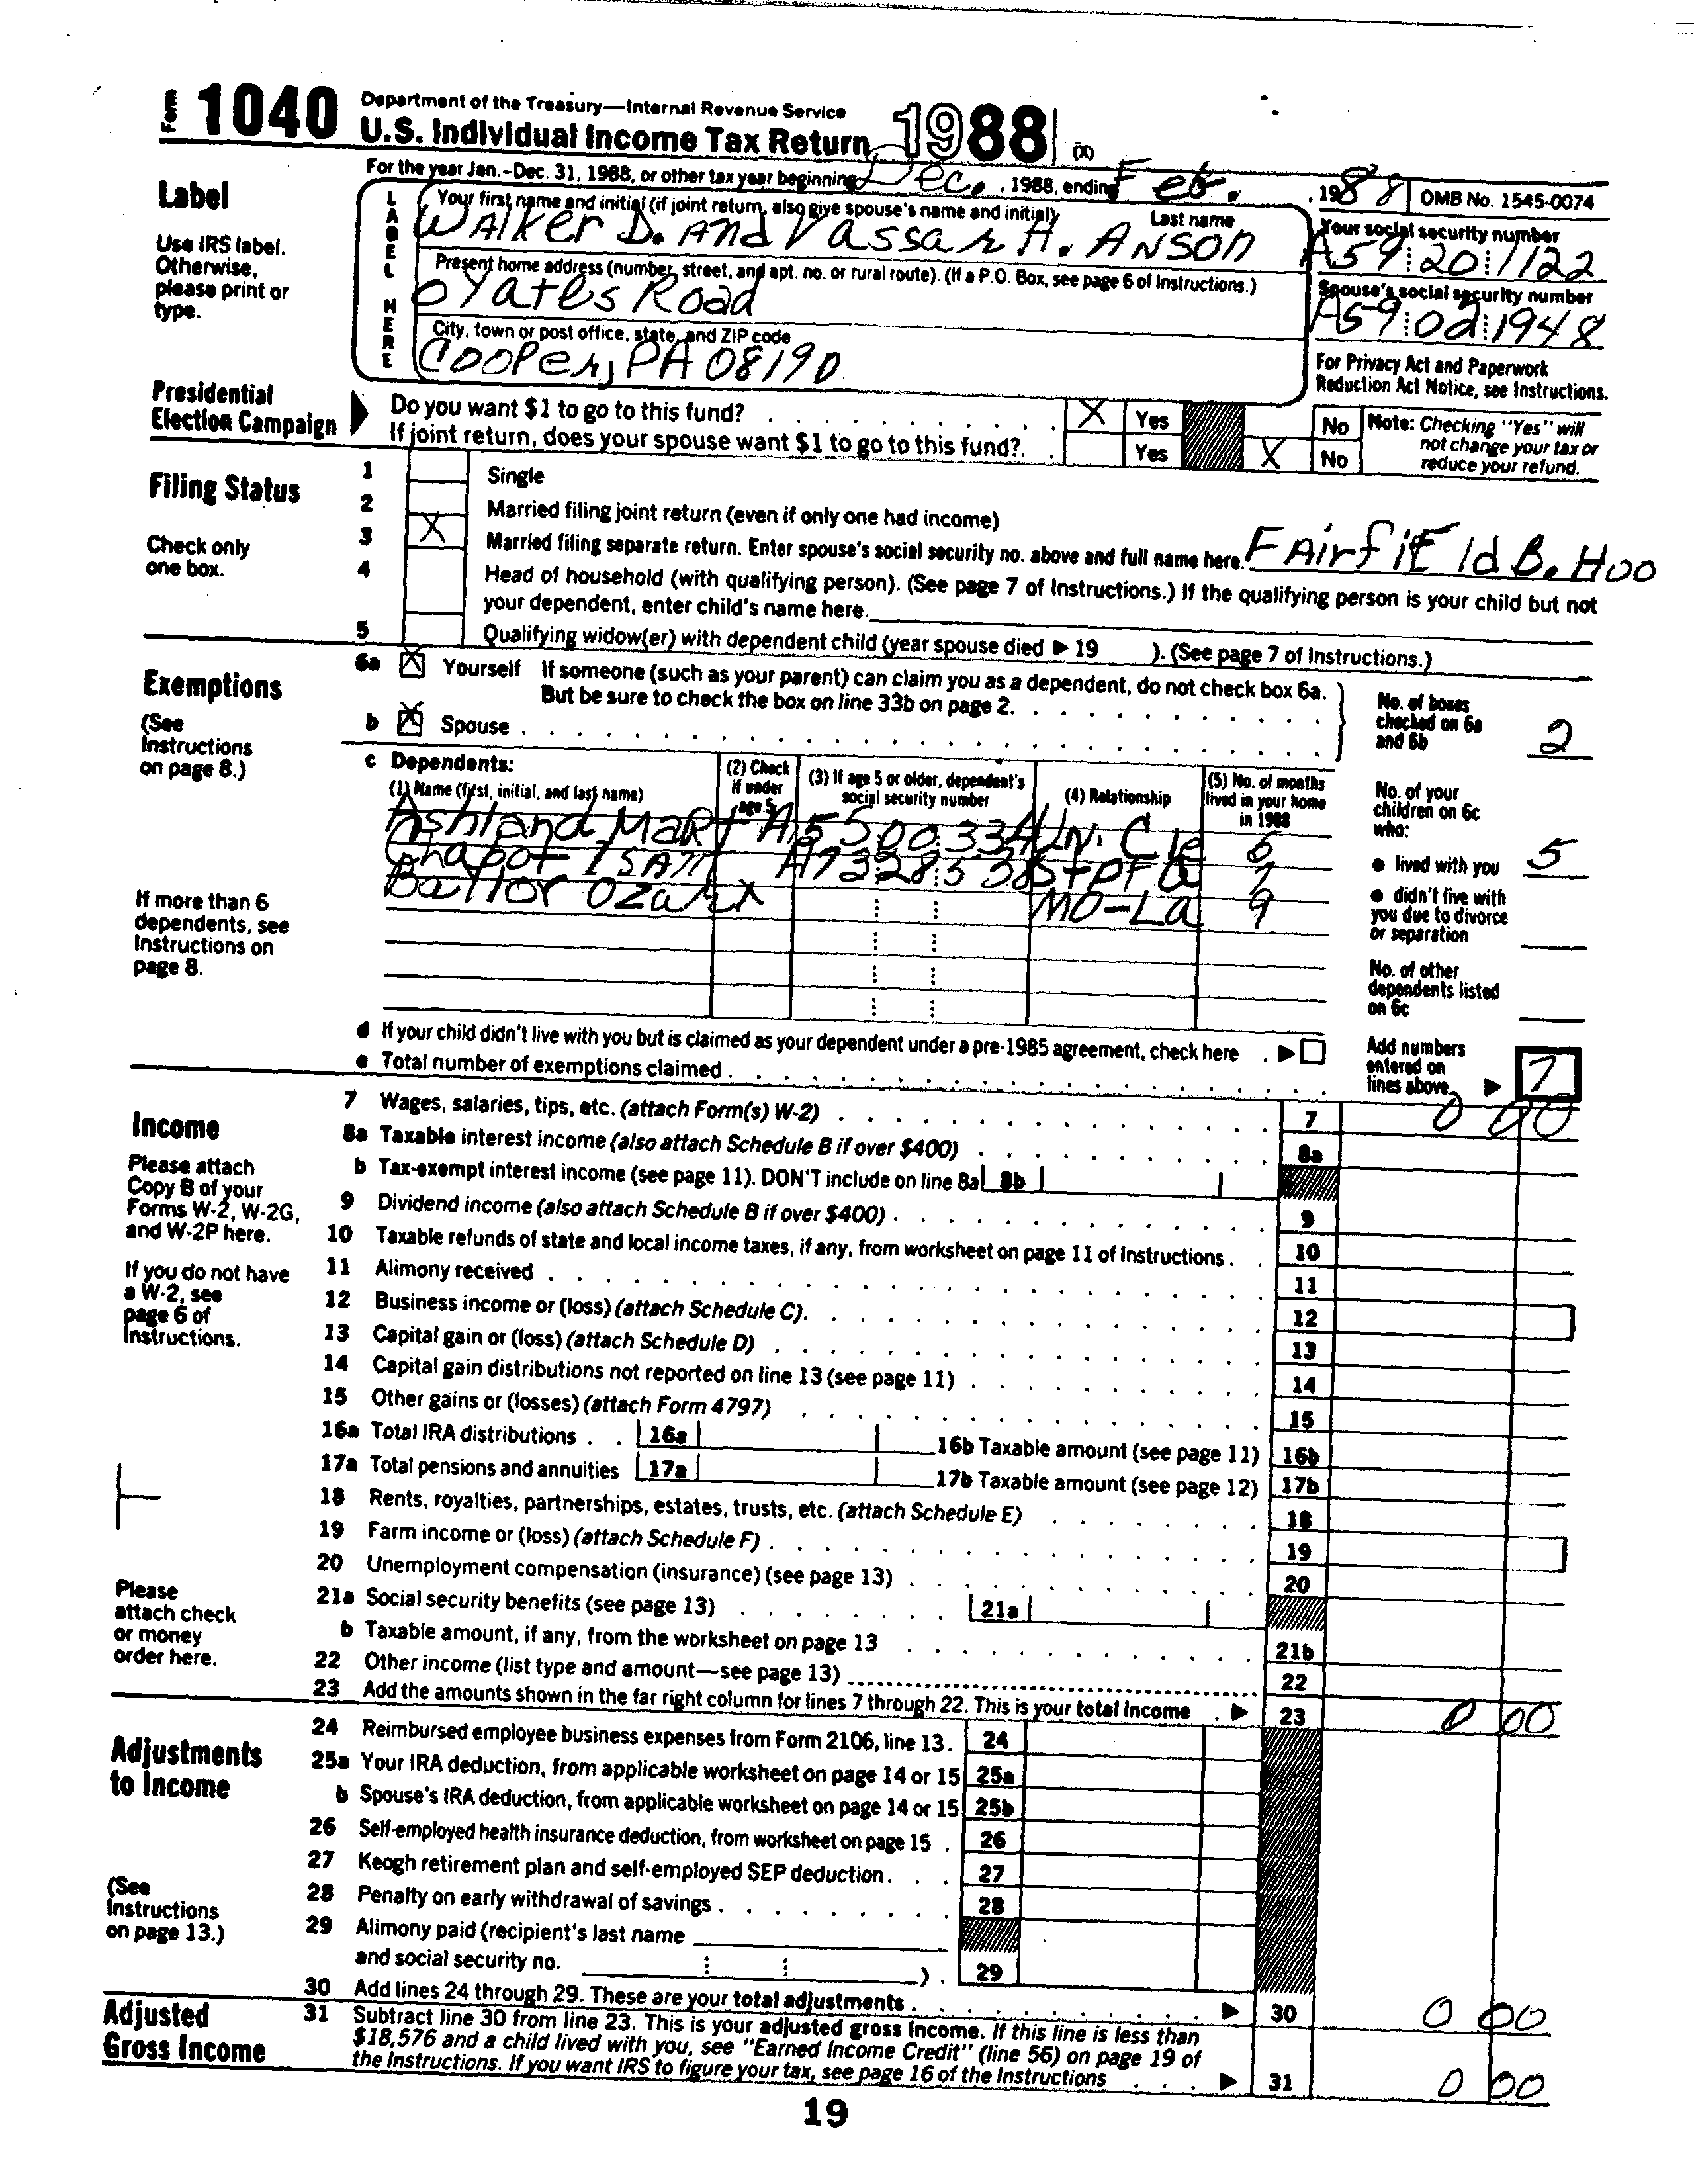 Form 1040 Department of the Treasury—Internal Revenue Service
U.S. Individual Income Tax Return 1988 (X)
For the year Jan.-Dec. 31, 1988, or other tax year beginning Dec. , 1988, ending Feb. , 1988 OMB No. 1545-0074
Label
Use IRS label. Otherwise, please print or type.
LABEL HERE
Your first name and initial (if joint return, also give spouse's name and initial) Last name
Walker D. And Vassar H. Anson
Your social security number
A59 20 1122
Present home address (number, street, and apt. no. or rural route). (If a P.O. Box, see page 6 of Instructions.)
Yates Road
Spouse's social security number
A59 02 1948
City, town or post office, state, and ZIP code
Cooper, PA 08190
For Privacy Act and Paperwork Reduction Act Notice, see Instructions.
Presidential Election Campaign
Do you want $1 to go to this fund? X Yes No
If joint return, does your spouse want $1 to go to this fund? Yes X No
Note: Checking "Yes" will not change your tax or reduce your refund.
Filing Status
Check only one box.
1 Single
2 Married filing joint return (even if only one had income)
3 X Married filing separate return. Enter spouse's social security no. above and full name here. FAirfiEld B. Hoo
4 Head of household (with qualifying person). (See page 7 of Instructions.) If the qualifying person is your child but not
your dependent, enter child's name here.
5 Qualifying widow(er) with dependent child (year spouse died ▶ 19 ). (See page 7 of Instructions.)
Exemptions
(See Instructions on page 8.)
6a X Yourself If someone (such as your parent) can claim you as a dependent, do not check box 6a.
But be sure to check the box on line 33b on page 2.
b X Spouse
No. of boxes checked on 6a and 6b 2
c Dependents:
(1) Name (first, initial, and last name) (2) Check if under age 5 (3) If age 5 or older, dependent's social security number (4) Relationship (5) No. of months lived in your home in 1988
Ashland Mart
MO-La 9
If more than 6 dependents, see Instructions on page 8.
No. of your children on 6c who:
● lived with you 5
● didn't live with you due to divorce or separation
No. of other dependents listed on 6c
d If your child didn't live with you but is claimed as your dependent under a pre-1985 agreement, check here ▶
e Total number of exemptions claimed
Add numbers entered on lines above ▶ 7
Income
Please attach Copy B of your Forms W-2, W-2G, and W-2P here.
If you do not have a W-2, see page 6 of Instructions.
Please attach check or money order here.
7 Wages, salaries, tips, etc. (attach Form(s) W-2) 7 0 00
8a Taxable interest income (also attach Schedule B if over $400) 8a
b Tax-exempt interest income (see page 11). DON'T include on line 8a 8b
9 Dividend income (also attach Schedule B if over $400) 9
10 Taxable refunds of state and local income taxes, if any, from worksheet on page 11 of Instructions 10
11 Alimony received 11
12 Business income or (loss) (attach Schedule C) 12
13 Capital gain or (loss) (attach Schedule D) 13
14 Capital gain distributions not reported on line 13 (see page 11) 14
15 Other gains or (losses) (attach Form 4797) 15
16a Total IRA distributions 16a 16b Taxable amount (see page 11) 16b
17a Total pensions and annuities 17a 17b Taxable amount (see page 12) 17b
18 Rents, royalties, partnerships, estates, trusts, etc. (attach Schedule E) 18
19 Farm income or (loss) (attach Schedule F) 19
20 Unemployment compensation (insurance) (see page 13) 20
21a Social security benefits (see page 13) 21a
b Taxable amount, if any, from the worksheet on page 13 21b
22 Other income (list type and amount—see page 13) 22
23 Add the amounts shown in the far right column for lines 7 through 22. This is your total income ▶ 23 0 00
Adjustments to Income
(See Instructions on page 13.)
24 Reimbursed employee business expenses from Form 2106, line 13 24
25a Your IRA deduction, from applicable worksheet on page 14 or 15 25a
b Spouse's IRA deduction, from applicable worksheet on page 14 or 15 25b
26 Self-employed health insurance deduction, from worksheet on page 15 26
27 Keogh retirement plan and self-employed SEP deduction 27
28 Penalty on early withdrawal of savings 28
29 Alimony paid (recipient's last name
and social security no. ) 29
30 Add lines 24 through 29. These are your total adjustments ▶ 30 0 00
Adjusted Gross Income
31 Subtract line 30 from line 23. This is your adjusted gross income. If this line is less than
$18,576 and a child lived with you, see "Earned Income Credit" (line 56) on page 19 of
the Instructions. If you want IRS to figure your tax, see page 16 of the Instructions ▶ 31 0 00
19